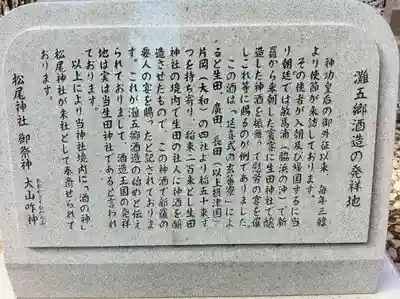 灘五郷酒造の発祥地
神功皇后の御外征以来、毎年三韓
より使節が来訪しております。
その使者が入朝及び帰国するに当
り朝廷では敏馬浦（脇浜の沖）で新
羅から来朝した賓客に生田神社で醸
造した神酒を振舞って慰労の宴を催
しこれ等に賜るのが例でありました。
この酒は「延喜式の玄蕃寮」によ
ると生田、廣田、長田（以上摂津国）
片岡（大和）の四社より稲五十束ず
つを持ち寄り、稲束二百束とし生田
神社の境内で生田の社人に神酒を醸
造させたもので、この神酒で新羅の
要人の宴を賜ったと記されておりま
す。これが灘五郷酒造の始めと伝え
られておりまして、酒造王国の発祥
地は実は当生田神社であると言われ
ております。
以上により当神社境内に「酒の神」
松尾神社が末社として奉斎せられて
おります。
松尾神社 御祭神 大山咋神